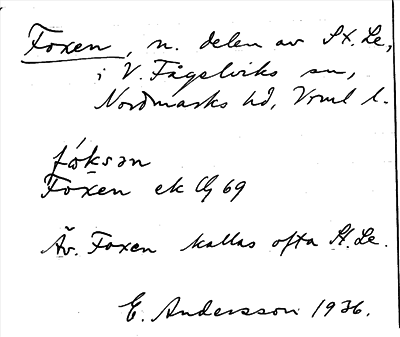 Foxen, n. delen av St. Le,
i V. Fågelviks sn,
Nordmarks hd, Vrml l.
fóksən
Foxen ek G 69
Äv. Foxen kallas ofta St. Le.
E. Andersson 1936.